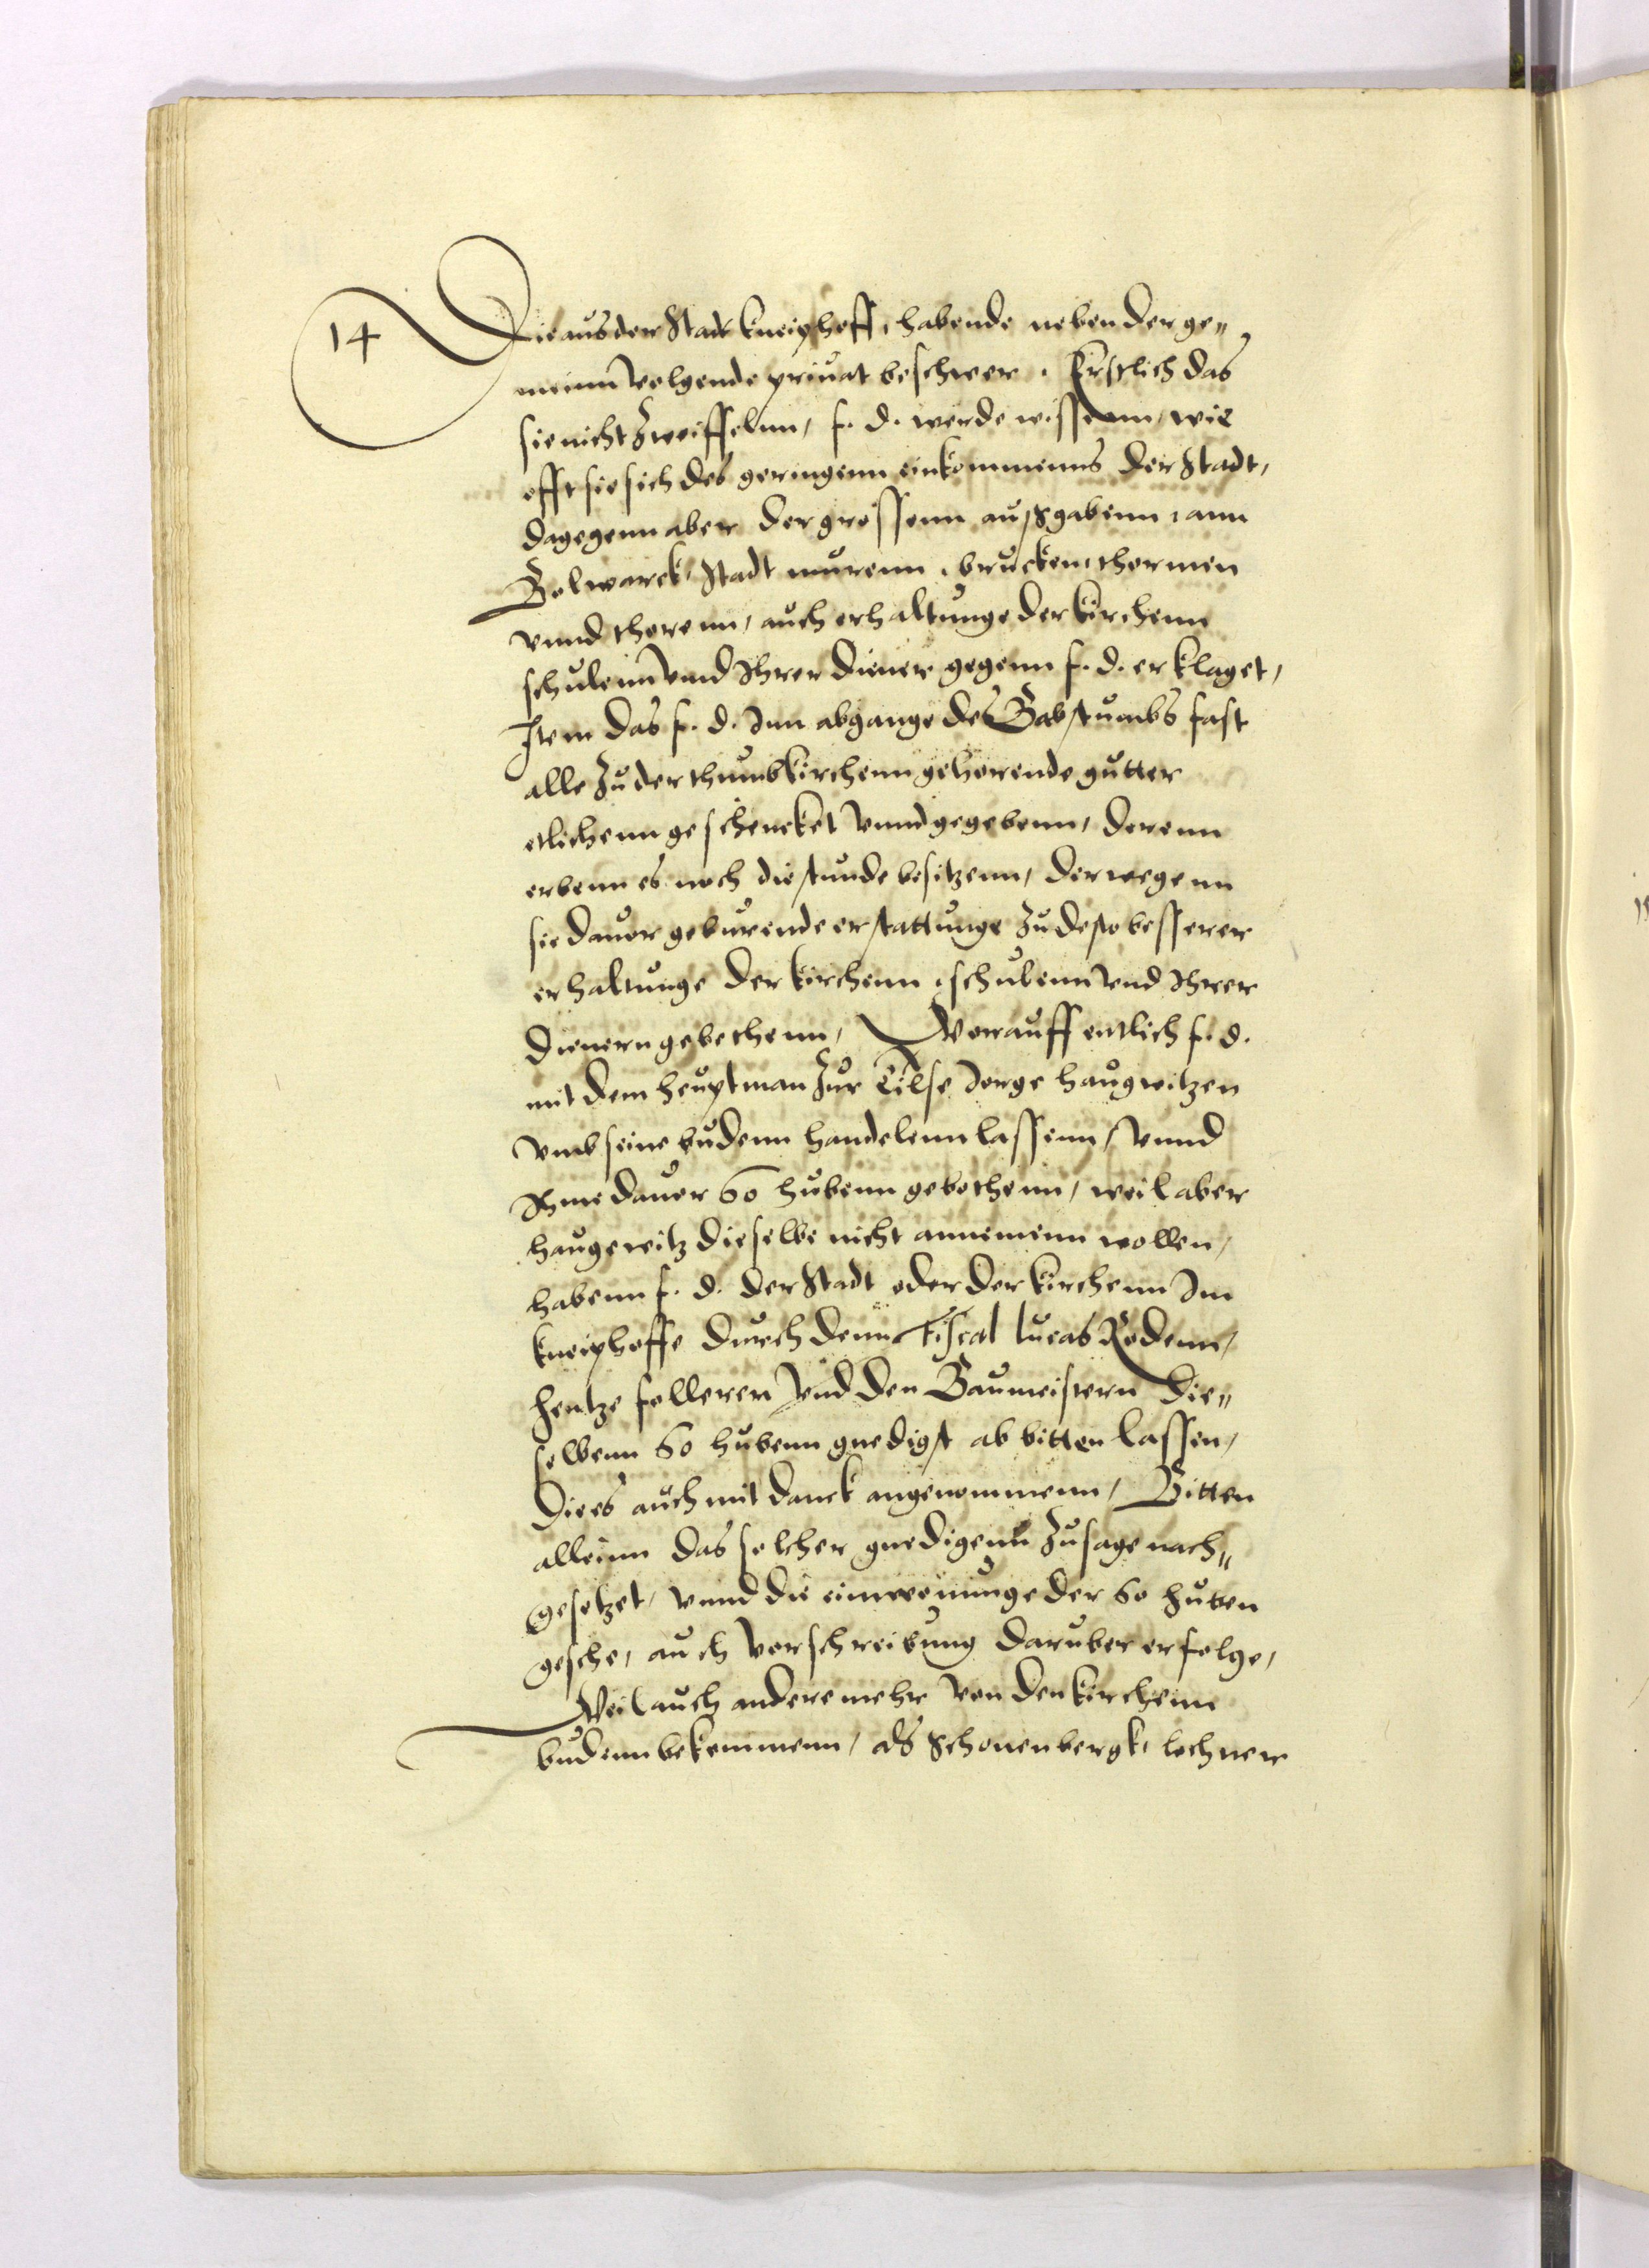 14
Die aus der Stadt kneiphoff, habende neben der ge„
meinn volgende priuat beschwer. Erstlich das
sie nicht Zweiffelnn, f. d. werde wissenn, wie
offt sie sich des geringenn einkommenns der Stadt,
dagegenn aber der grossenn außgabenn, ann
Bolwarck, Stadt murenn, bruckenn, thormen
vnnd thorenn, auch erhaltunge der kirchenn
schulenn vnnd Ihrer diener gegenn f. d. erklaget,
Item das f. d. Inn abgange des Babstumbs fast
alle Zu der thumbkirchenn gehorende gutter
etlichenn geschencket vnnd gegebenn, derenn
erbenn es noch die stunde besitzenn, derwegenn
sie dauor geburende erstattunge Zu desto besserer
erhaltunge der kirchenn, schulenn vnd Ihrer
dienern gebethenn, Worauff entlich f. d.
mit dem heuptman Zur Tilse Jorge haugwitzen
vmb seine budenn handelenn lassenn, vnnd
Ihme dauor 60 hubenn gebothenn, weil aber
haugewitz dieselbe nicht annemenn wollen,
habenn f. d. der Stadt oder der kirchenn Im
kneiphoffe durch denn Fiscal lucas Rodenn,
hentze fellerer vnd den Baumeistern die„
selbenn 60 hubenn gnedigst ab bitten lassen,
Die es auch mit danck angenommenn, Bitten
alleinn das solcher gnedigenn Zusage nach„
gesetzet, vnnd die einweiunge der 60 huben
gesche, auch vorschreibung daruber erfolge,
Weil auch andere mehr von den kirchenn
budenn bekommenn, als Schonenbergk, lochner